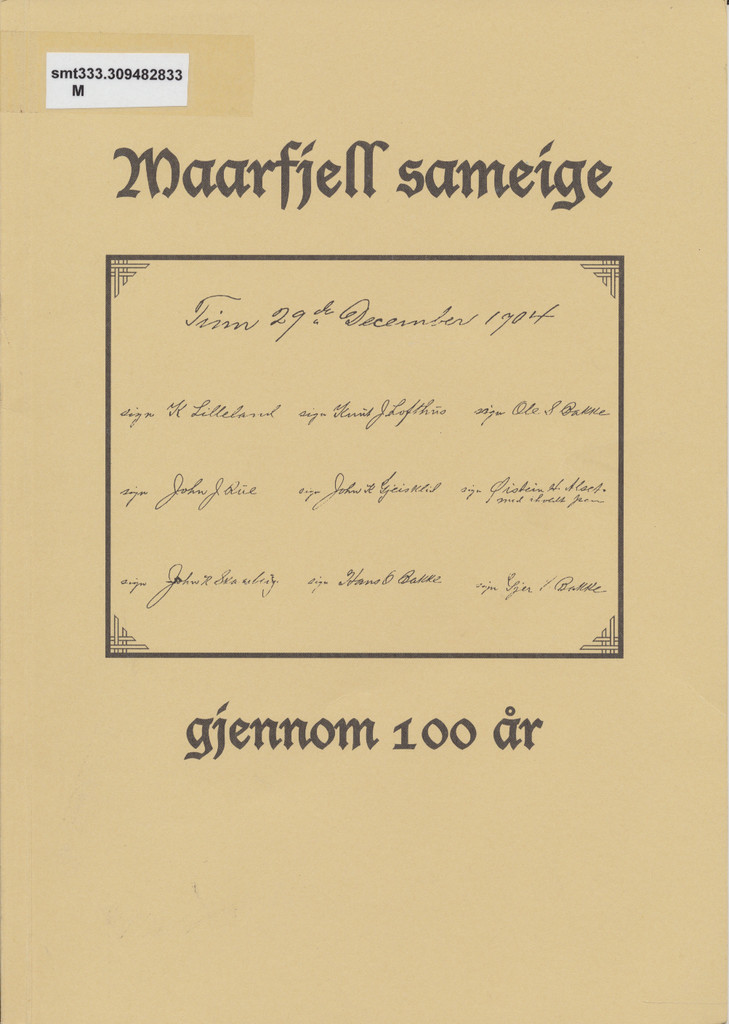 smt333.309482833
M
Maarfjell sameige
Tinn 29de December 1904
sign K Lilleland sign Knut J. Lofthus sign Ole S Bakke
sign John J. Rue sign John K Gjeisklid sign Øistein H. Alset.
med iholdt pen
sign John K Skaarberg sign Hans O Bakke sign Gjer S Bakke
gjennom 100 år